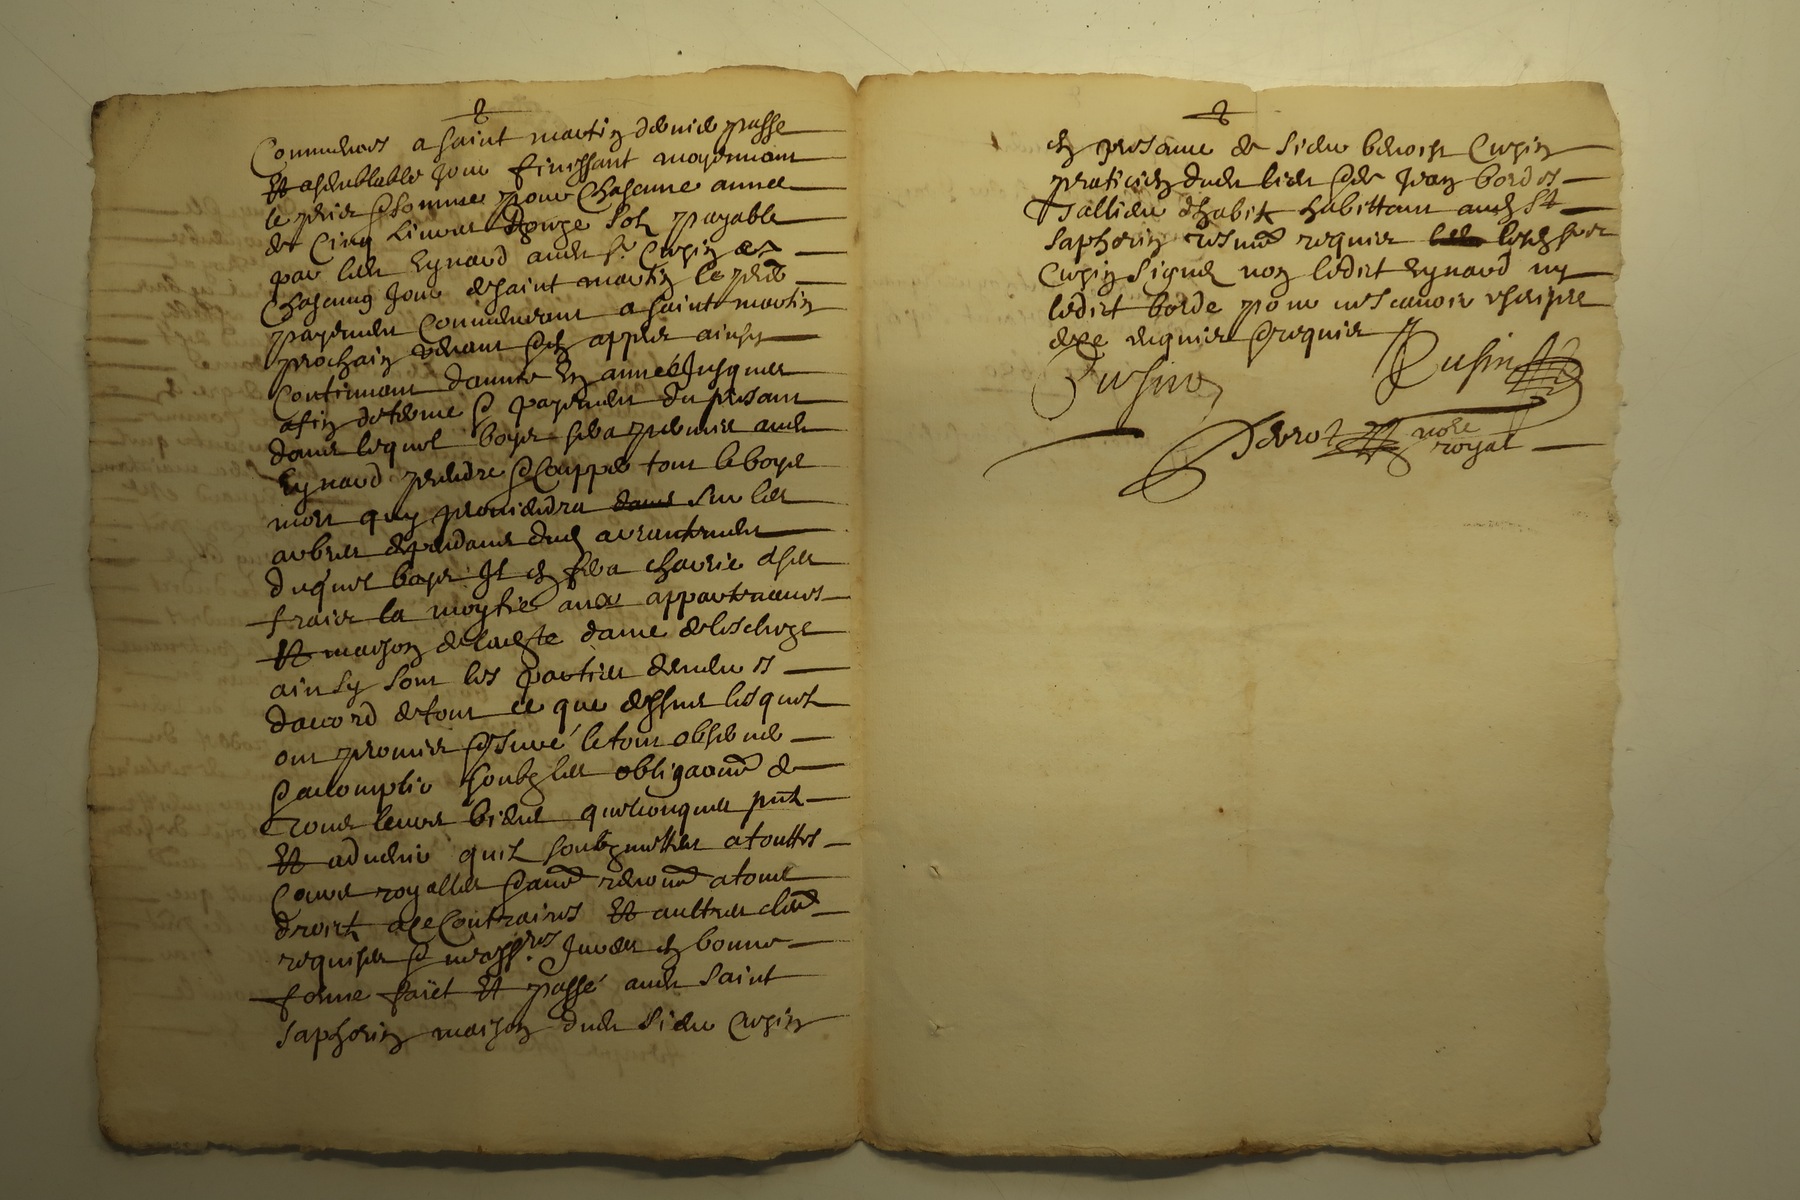 Commences a saint martin dernier passe
Et a semblable jour finissant moyennant
le prix & somme pour chascune annee
de cinq livres douze solz payable
par led Eynard aud sr Cusin
chascung jour de saint martin le premier
payement commencant a saint martin
prochain venant & en appres ainsy
continuant dannee en année jusques
a fin de terme & payement du presant
dans lequel boys sera permis aud
Eynard prendre & coupper tout le boys
mort quy proviendra dans sur les
arbres
duquel boys Il en fera charrier a ses
fraix la moytie aux appartenances
Et maison de ladicte dame
ainsy sont les parties demeures
daccord de tout ce que dessus lesquelz
ont promis & juré le tout observer
& accomplir soubz les obligaons de
tous leurs biens quelconques pntz
Et advenir quilz soubzmettes a touttes
cours royalles & avec renonons a tous
droictz a ce contraires Et aultres claus
requises & necessres Jurees en bonne
forme faict Et passé aud saint
saphorin maison dud sieur Cusin
en presance de sieur benoist Cusin
praticien dud lieu & de Jean bordes
habittant aud St
saphorin tesmoings requis lesd srs
Cusin signes non ledict Eynard ny
ledict borde pour ne scavoir escripre
de ce enquis & requis
Cusin
Cusin
nore
royal